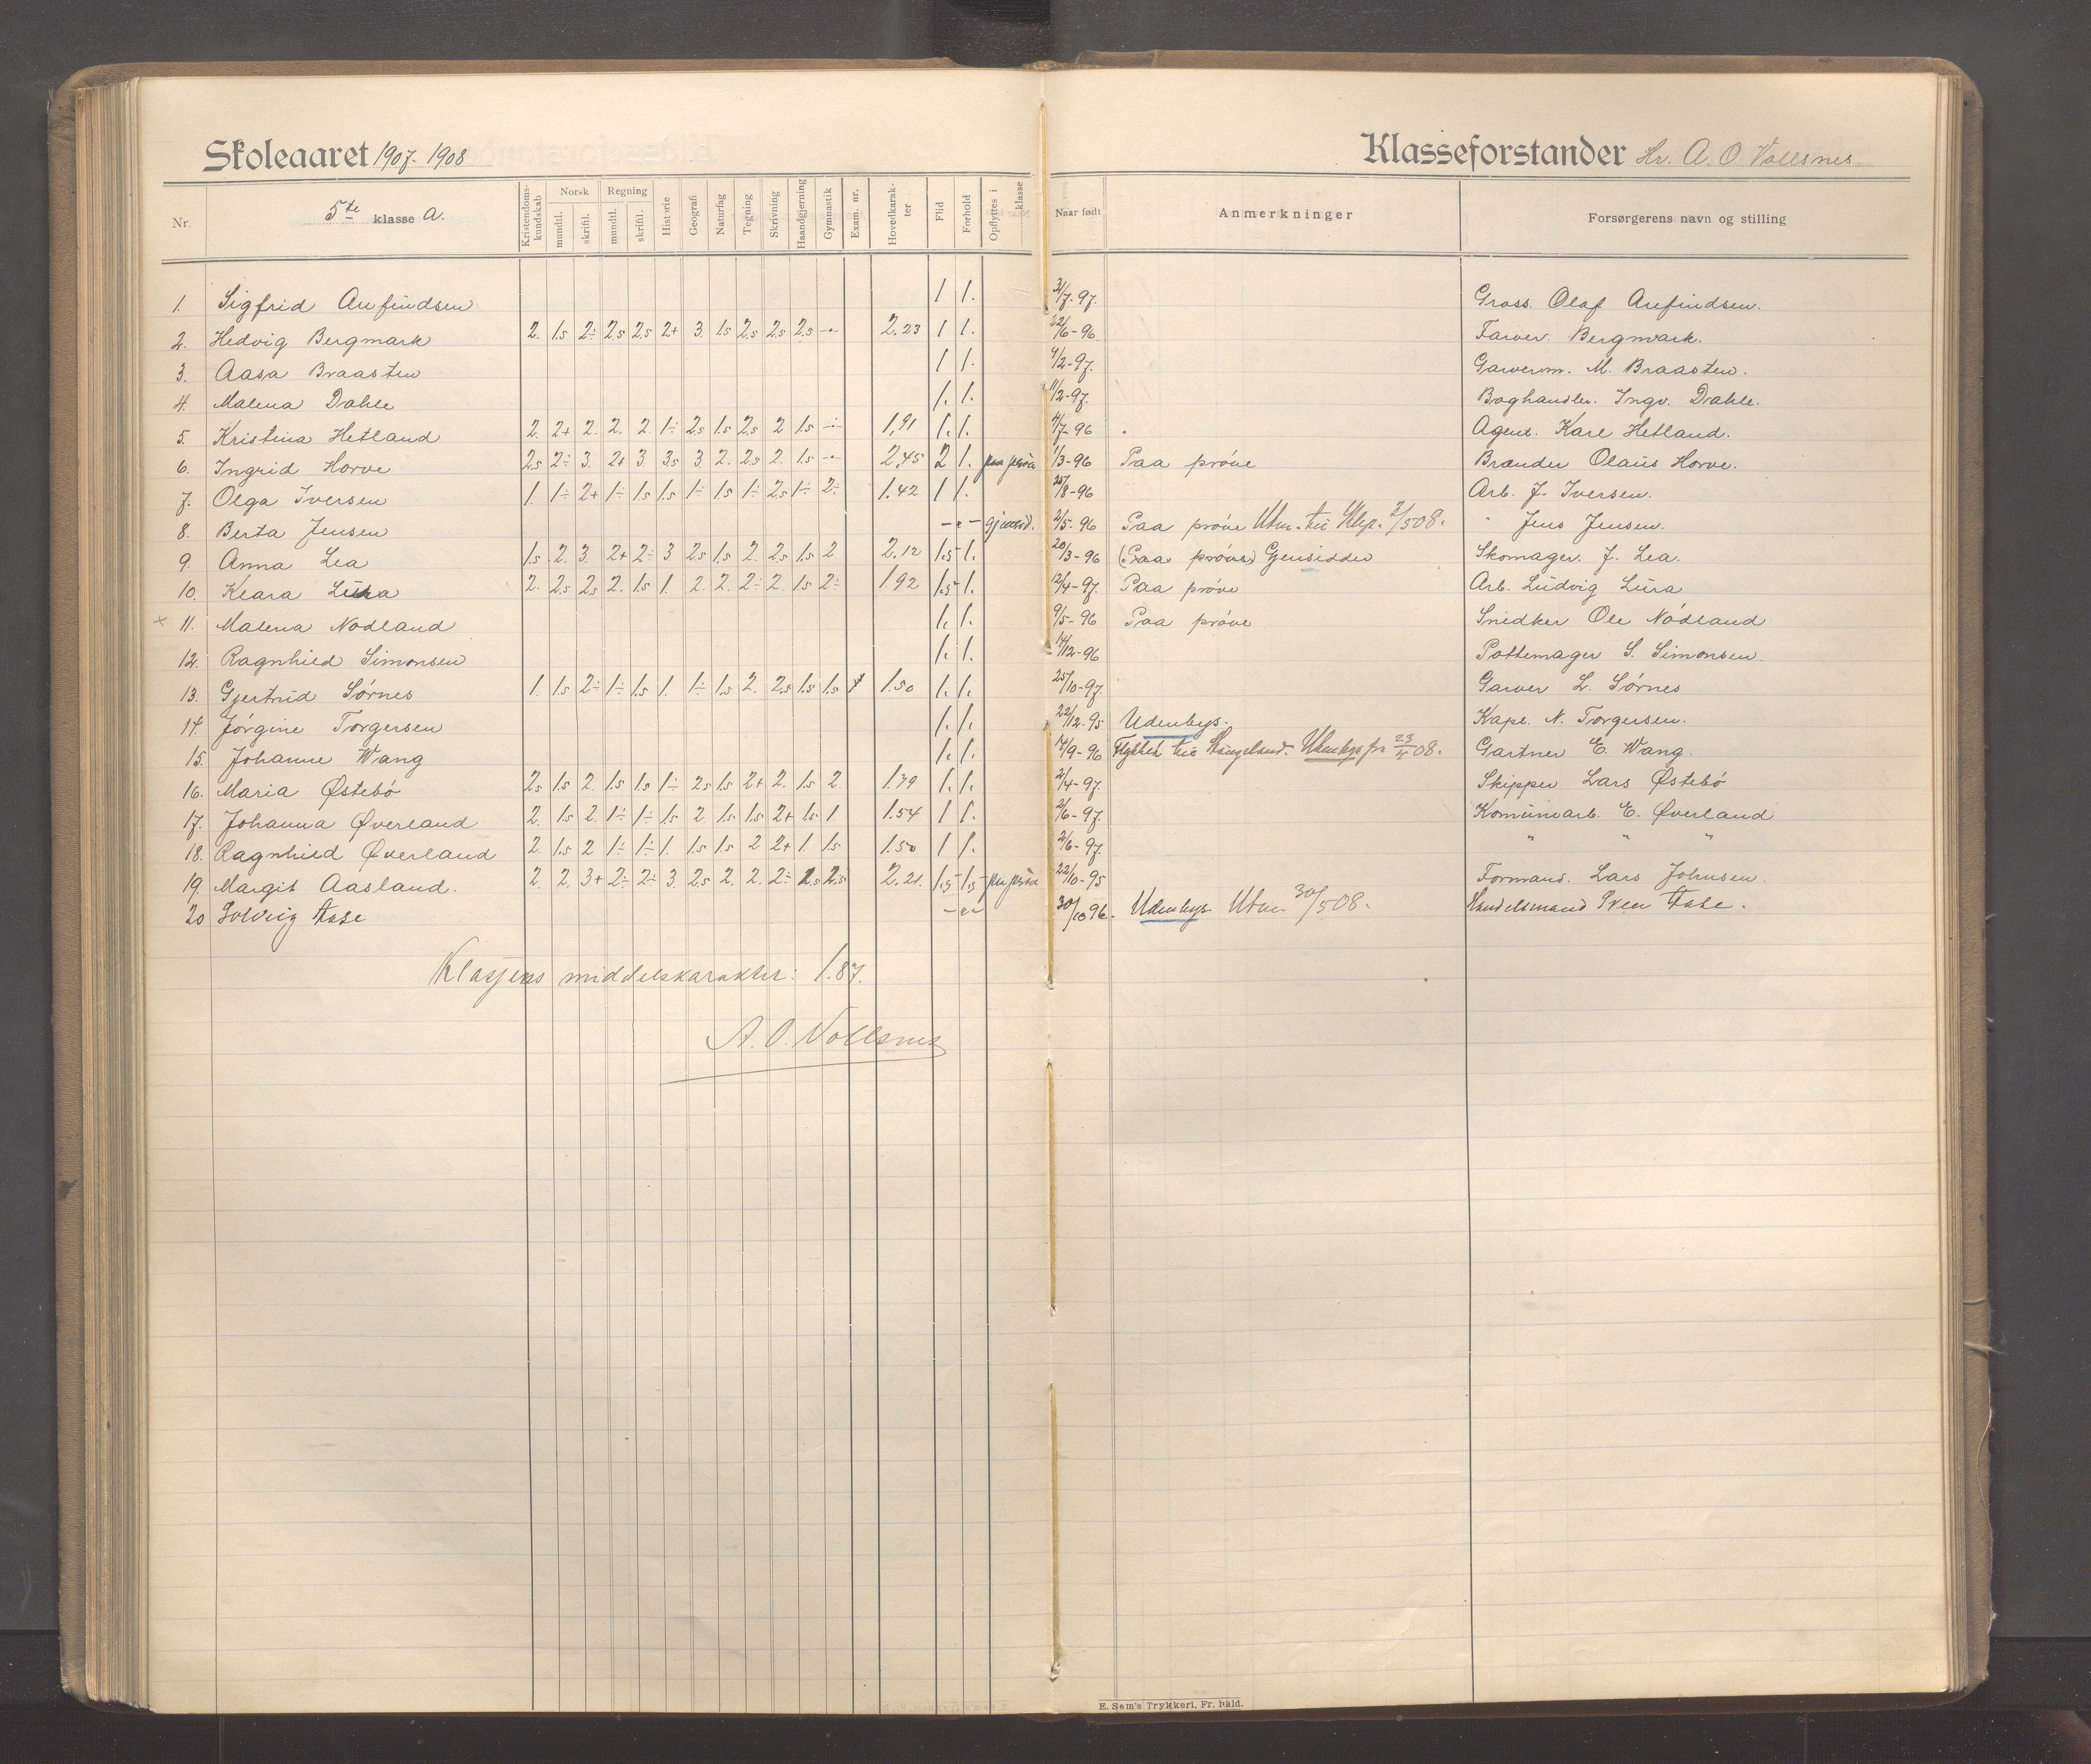 Skoleaaret 1907-1908 Klasseforstander Hr. A. O Vollsnes
Nr. 5te klasse A. Kristendomskundskab Norsk mundtl. skriftl. Regning mundtl. skriftl. Historie Geografi Naturfag Tegning Skrivning Haandgjerning Gymnastik Exam. nr. Hovedkarakter Flid Forhold Opflyttes i klasse Naar født Anmerkninger Forsørgerens navn og stilling
1. Sigfrid Anfindsen 1 1. 31/7-97. Gross. Olaf Anfindsen.
2. Hedvig Bergmark 2. 1.5 2÷ 2.5 2.5 2+ 3. 1.5 2.5 2.5 2.5 -"- 2,23 1 1. 22/6-96. Farver. Bergmark.
3. Aasa Braasten 1 1. 4/2-97. Garverm. M. Braasten.
4. Malena Dahle 1. 1. 11/2-97. Boghandler. Ingv. Dahle.
5. Kristina Hetland 2. 2+ 2. 2. 2. 1÷ 2.5 1.5 2.5 2 1.5 -"- 1,91 1. 1. 4/7-96 Agent. Karl Hetland.
6. Ingrid Horve 2.5 2÷ 3. 2+ 3. 3.5 3. 2. 2.5 2. 1.5 -"- 2,45 2 1. paa prøve 1/3-96 Paa prøve Brænder Olaus Horve.
7. Olga Iversen 1. 1÷ 2+ 1÷ 1.5 1.5 1÷ 1.5 1÷ 2.5 1÷ 2÷ 1.42 1 1. 25/8-96 Arb. J. Iversen.
8. Berta Jensen -"- 2/5-96 Paa prøve Utm. til Klep. 2/5 08. " Jens Jensen.
9. Anna Lea 1.5 2. 3. 2+ 2÷ 3 2.5 1.5 2. 2.5 1.5 2 2.12 1.5 1. 20/3-96 (Paa prøve) Gjensidder Skomager. J. Lea.
10. Klara Lura 2. 2.5 2.5 2. 1.5 1. 2. 2. 2÷ 2. 1.5 2÷ 1.92 1.5 1. 12/4-97. Paa prøve Arb. Ludvig Lura
× 11. Malena Nodland 1. 1. 9/5-96 Paa prøve Snedker Ole Nødland
12. Ragnhild Simonsen 1. 1. 14/12-96 Pottemager S. Simonsen.
13. Gjertrud Sørnes 1. 1.5 2÷ 1÷ 1.5 1. 1÷ 1.5 2. 2.5 1.5 1.5 1.50 1. 1. 25/10-97. Garver L. Sørnes
14. Jørgine Torgersen 1. 1. 22/12-95 Udenbys. Kapt. N. Torgersen.
15. Johanne Wang 1. 1. 14/9-96 Flyttet til Skangeland. Udenbys fra 23/4 08. Gartner E. Wang.
16. Maria Østebö 2.5 1.5 2. 1.5 1.5 1÷ 2.5 1.5 2+ 2. 1.5 2. 1.79 1. 1. 2/4-97. Skipper Lars Østebö
17. Johanna Øverland 2. 1.5 2. 1÷ 1÷ 1.5 2. 1.5 1.5 2+ 1.5 1. 1.54 1 1. 2/6-97. Komunearb. E. Øverland
18. Ragnhild Øverland 2. 1.5 2 1÷ 1÷ 1. 1.5 1.5 2 2+ 1 1.5 1.50 1 1. 2/6-97. " " "
19. Margit Aasland. 2. 2. 3+ 2÷ 2÷ 3. 2.5 2. 2. 2÷ 2.5 2.5 2.21. 1.5 1.5 paa prøve 22/10-95 Formand. Lars Johnsen.
20 Solveig Aase -"- 30/10 96. Udenbys Utm 30/5 08. Handelsmand Sven Aase.
Klassens middelskarakter: 1.87.
A. O. Vollsnes
E. Sem's Trykkeri, Fr. hald.